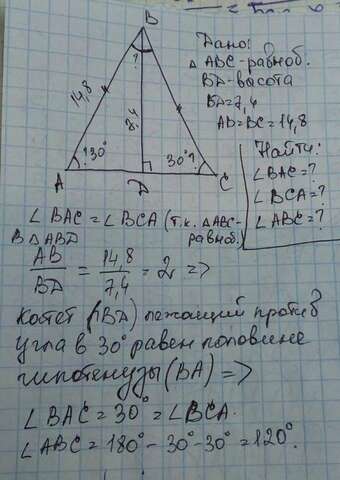 B
Дано:
△ ABC-равноб.
BD-высота
BD=7,4
AB=BC=14,8
14,8
?
7,4
Найти:
∠BAC=?
∠BCA=?
∠ABC=?
?30°
30°?
A
D
C
∠BAC=∠BCA (т.к. △ABC-
равноб.)
В △ABD
AB/BD = 14,8/7,4 = 2 =>
Катет (BD) лежащий против
угла в 30° равен половине
гипотенузы (BA) =>
∠BAC=30°=∠BCA.
∠ABC=180°-30°-30°=120°.